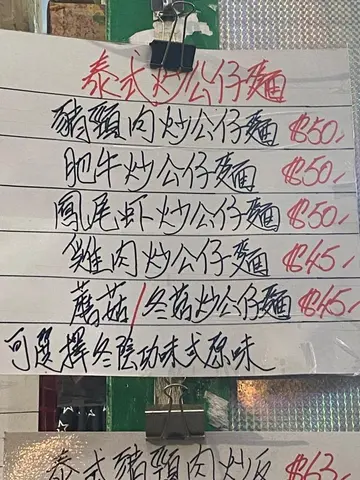 泰式炒公仔麵
豬頸肉炒公仔麵 $50.-
肥牛炒公仔麵 $50.-
鳳尾虾炒公仔麵 $50.-
雞肉炒公仔麵 $45.-
蘑菇/冬菇炒公仔麵 $45.-
可選擇冬陰功味或原味
泰式豬頸肉炒飯 $63.-